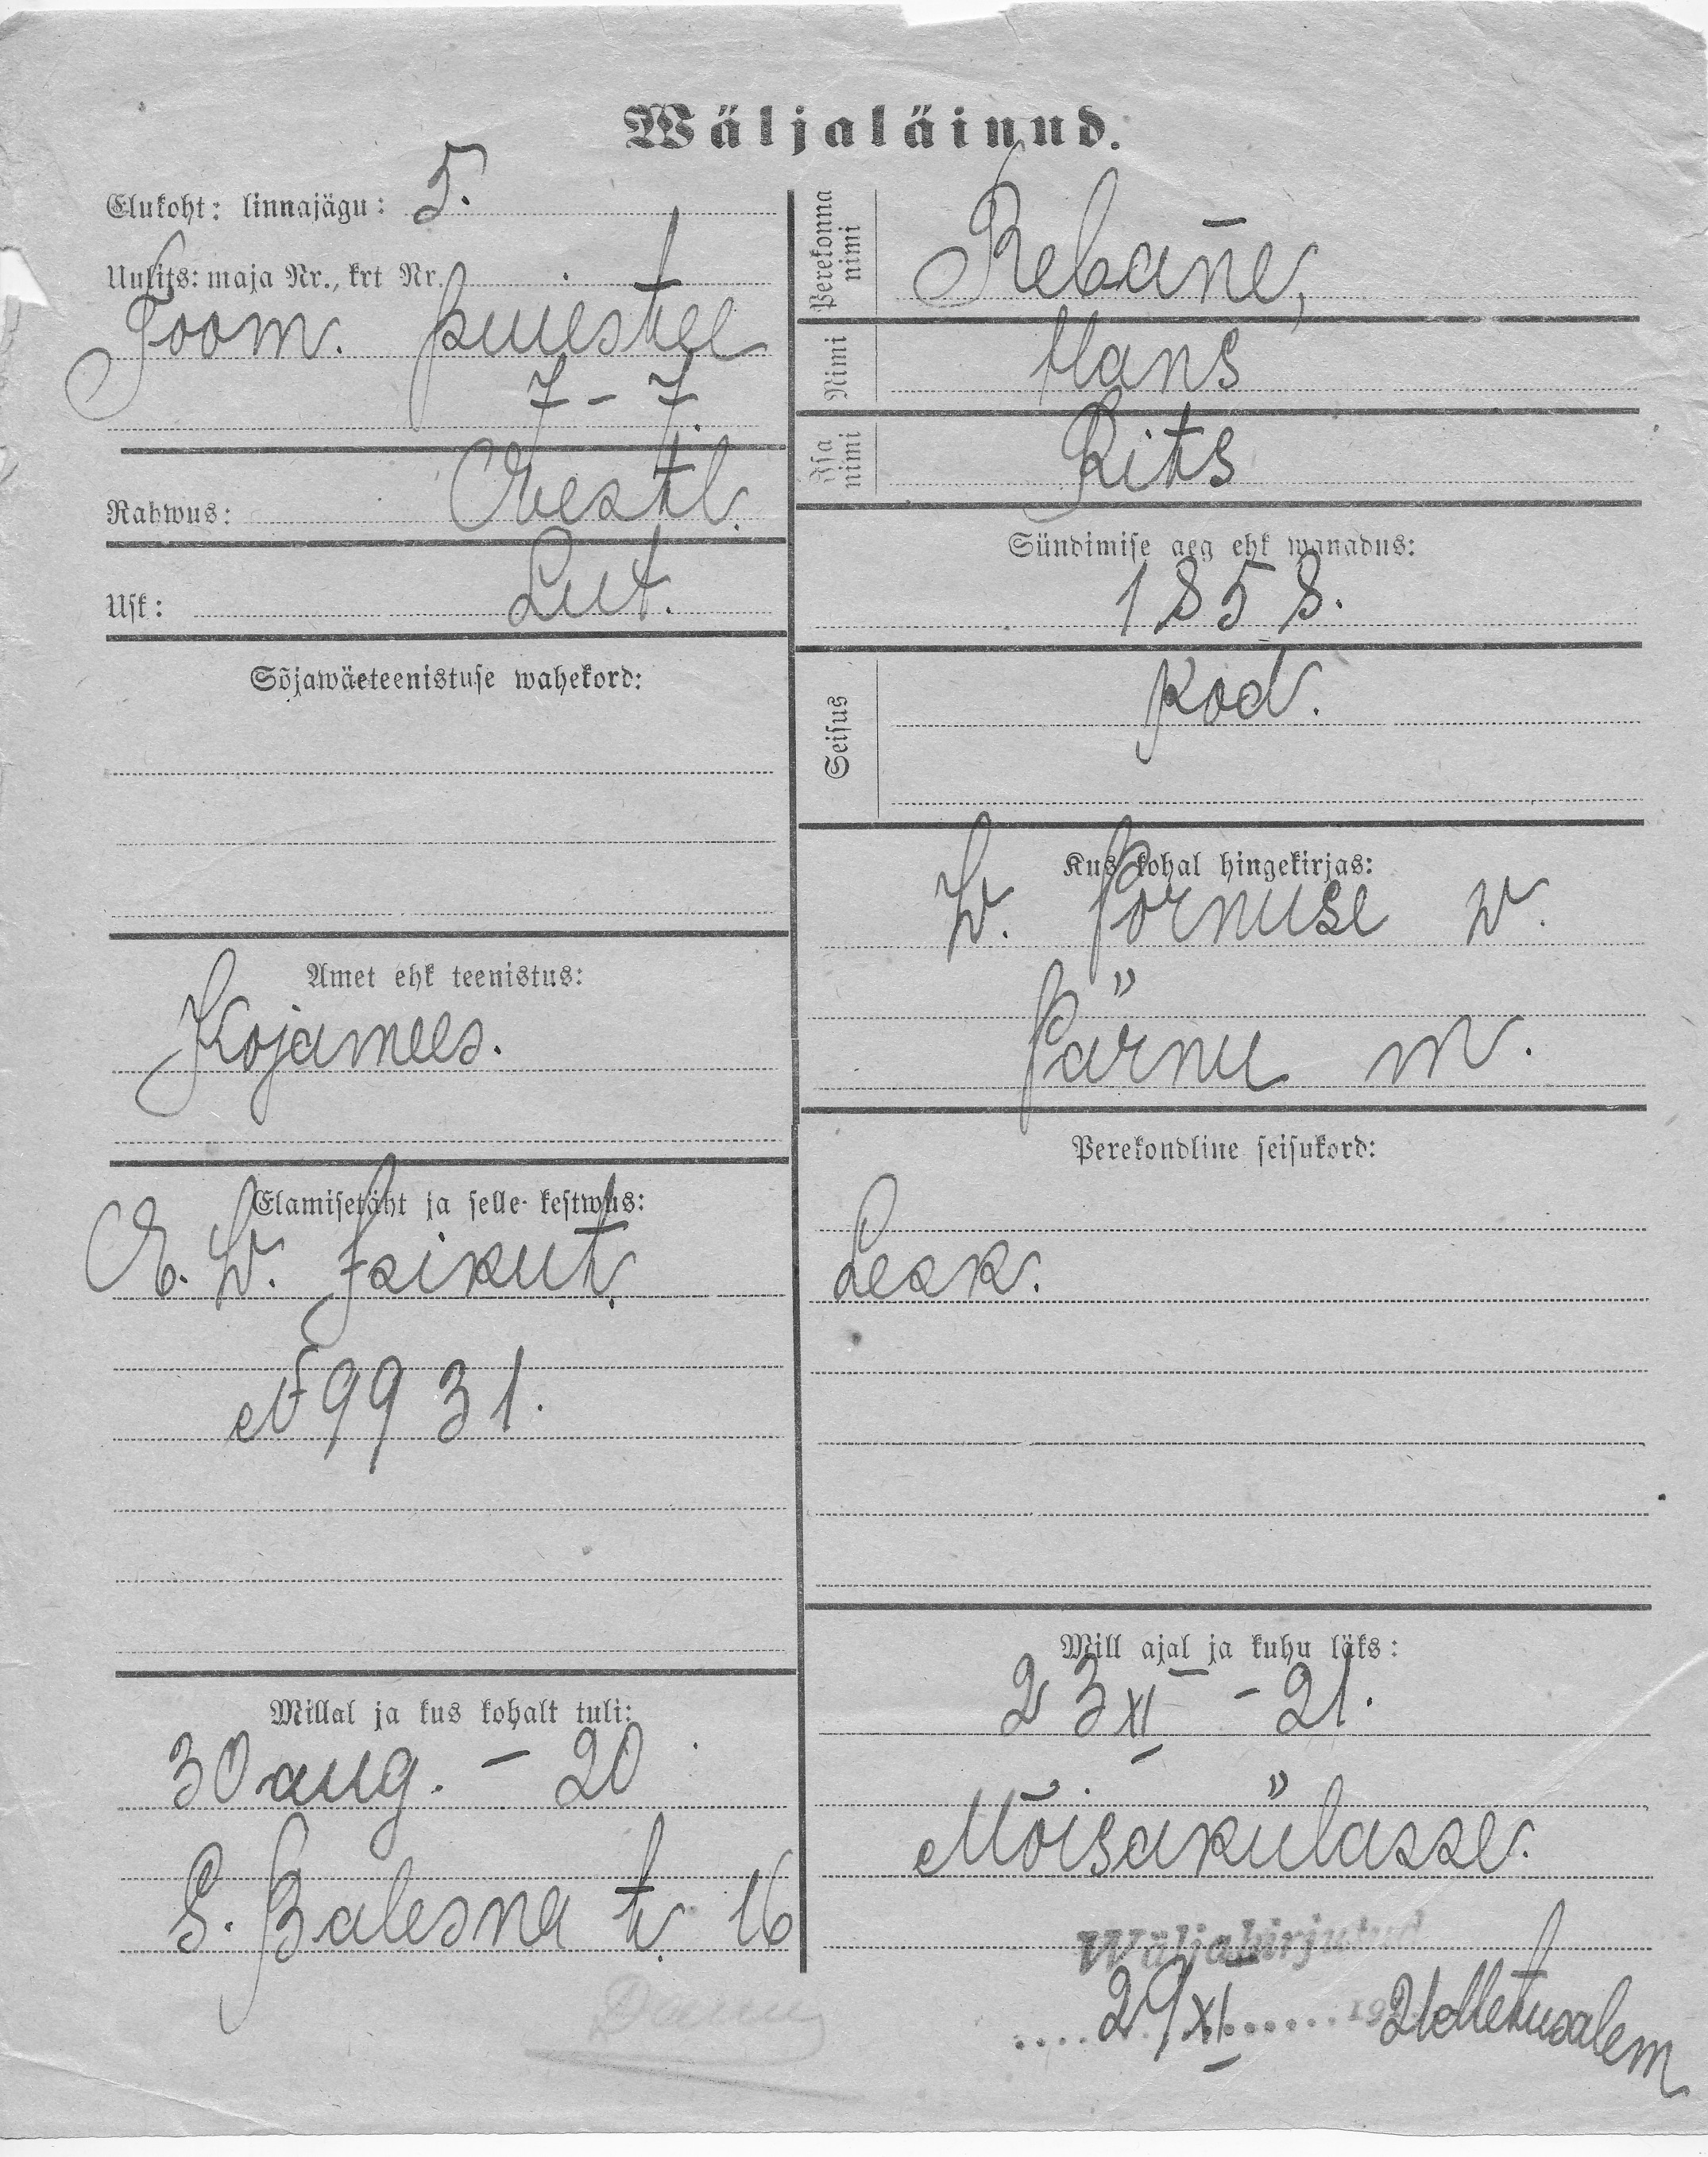 Wäljaläinud.
Elukoht: linnajägu: 5.
Uulits: maja Nr., krt Nr.
Toom. puiestee
7 - 7.
Rahwus: Eestl.
Usk: Lut.
Sõjawäeteenistuse wahekord:
Amet ehk teenistus:
Kojamees.
Elamisetäht ja selle kestwus:
E. W. Isikut.
№ 9931.
Millal ja kus kohalt tuli:
30 aug. - 20
t. 16
Perekonna nimi Rebane,
Nimi Hans
Isa nimi Rits
Sündimise aeg ehk wanadus:
1858.
Seisus kod.
Kus kohal hingekirjas:
W. Pornuse w.
Pärnu m.
Perekondline seisukord:
Lesk.
Mill ajal ja kuhu läks:
23 XI - 21.
Mõisakülasse.
Wäljakirjutud
29 XI 1921 Metusalem